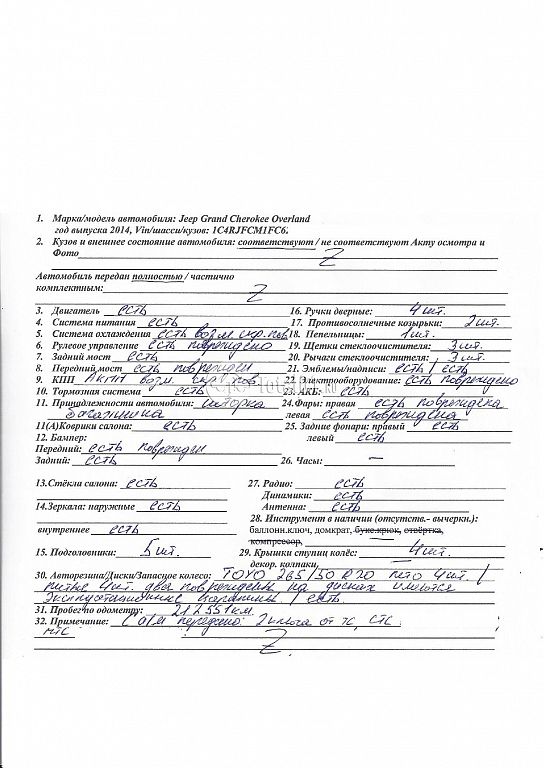 1. Марка/модель автомобиля: Jeep Grand Cherokee Overland
год выпуска 2014, Vin/шасси/кузов: 1C4RJFCM1FC6
2. Кузов и внешнее состояние автомобиля: соответствуют / не соответствуют Акту осмотра и
Фото Z
Автомобиль передан полностью / частично
комплектным: Z
3. Двигатель есть 16. Ручки дверные: 4 шт.
4. Система питания есть 17. Противосолнечные козырьки: 2 шт.
5. Система охлаждения есть возм. скр. пов 18. Пепельницы: 1 шт.
6. Рулевое управление есть повреждено 19. Щетки стеклоочистителя: 3 шт.
7. Задний мост есть 20. Рычаги стеклоочистителя: 3 шт.
8. Передний мост есть поврежден 21. Эмблемы/надписи: есть / есть
9. КПП АКПП возм. скр. пов 22. Электрооборудование: есть повреждено
10. Тормозная система есть 23. АКБ: есть
11. Принадлежности автомобиля: шторка 24. Фары: правая есть повреждена
багажника левая есть повреждена
11(А)Коврики салона: есть 25. Задние фонари: правый есть
12. Бампер: левый есть
Передний: есть поврежден
Задний: есть 26. Часы: —
13. Стёкла салона: есть 27. Радио: есть
Динамики: есть
14. Зеркала: наружные есть Антенна: есть
28. Инструмент в наличии (отсутств.- вычеркн.):
внутреннее есть баллонн.ключ, домкрат, букс.крюк, отвёртка,
компрессор,
15. Подголовники: 5 шт. 29. Крышки ступиц колёс: 4 шт.
декор. колпаки, —
30. Авторезина/Диски/Запасное колесо: TOYO 265/50 R20 лето 4 шт. /
литые 4 шт. два повреждены на дисках имеются
эксплуатационные царапины / есть
31. Пробег по одометру: 212 551 км.
32. Примечание: С а/м передано: 2 ключа от ТС, СТС
ПТС Z